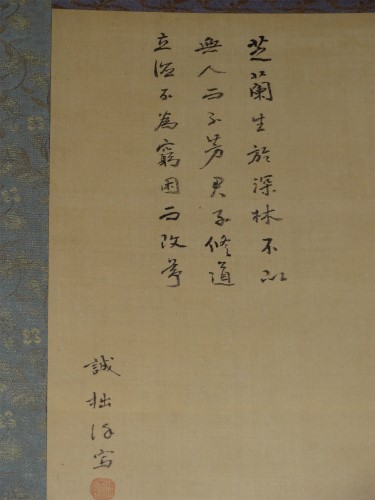 芝蘭生於深林不以
無人而不芳君子修道
立德不為窮困而改節
誠拙写